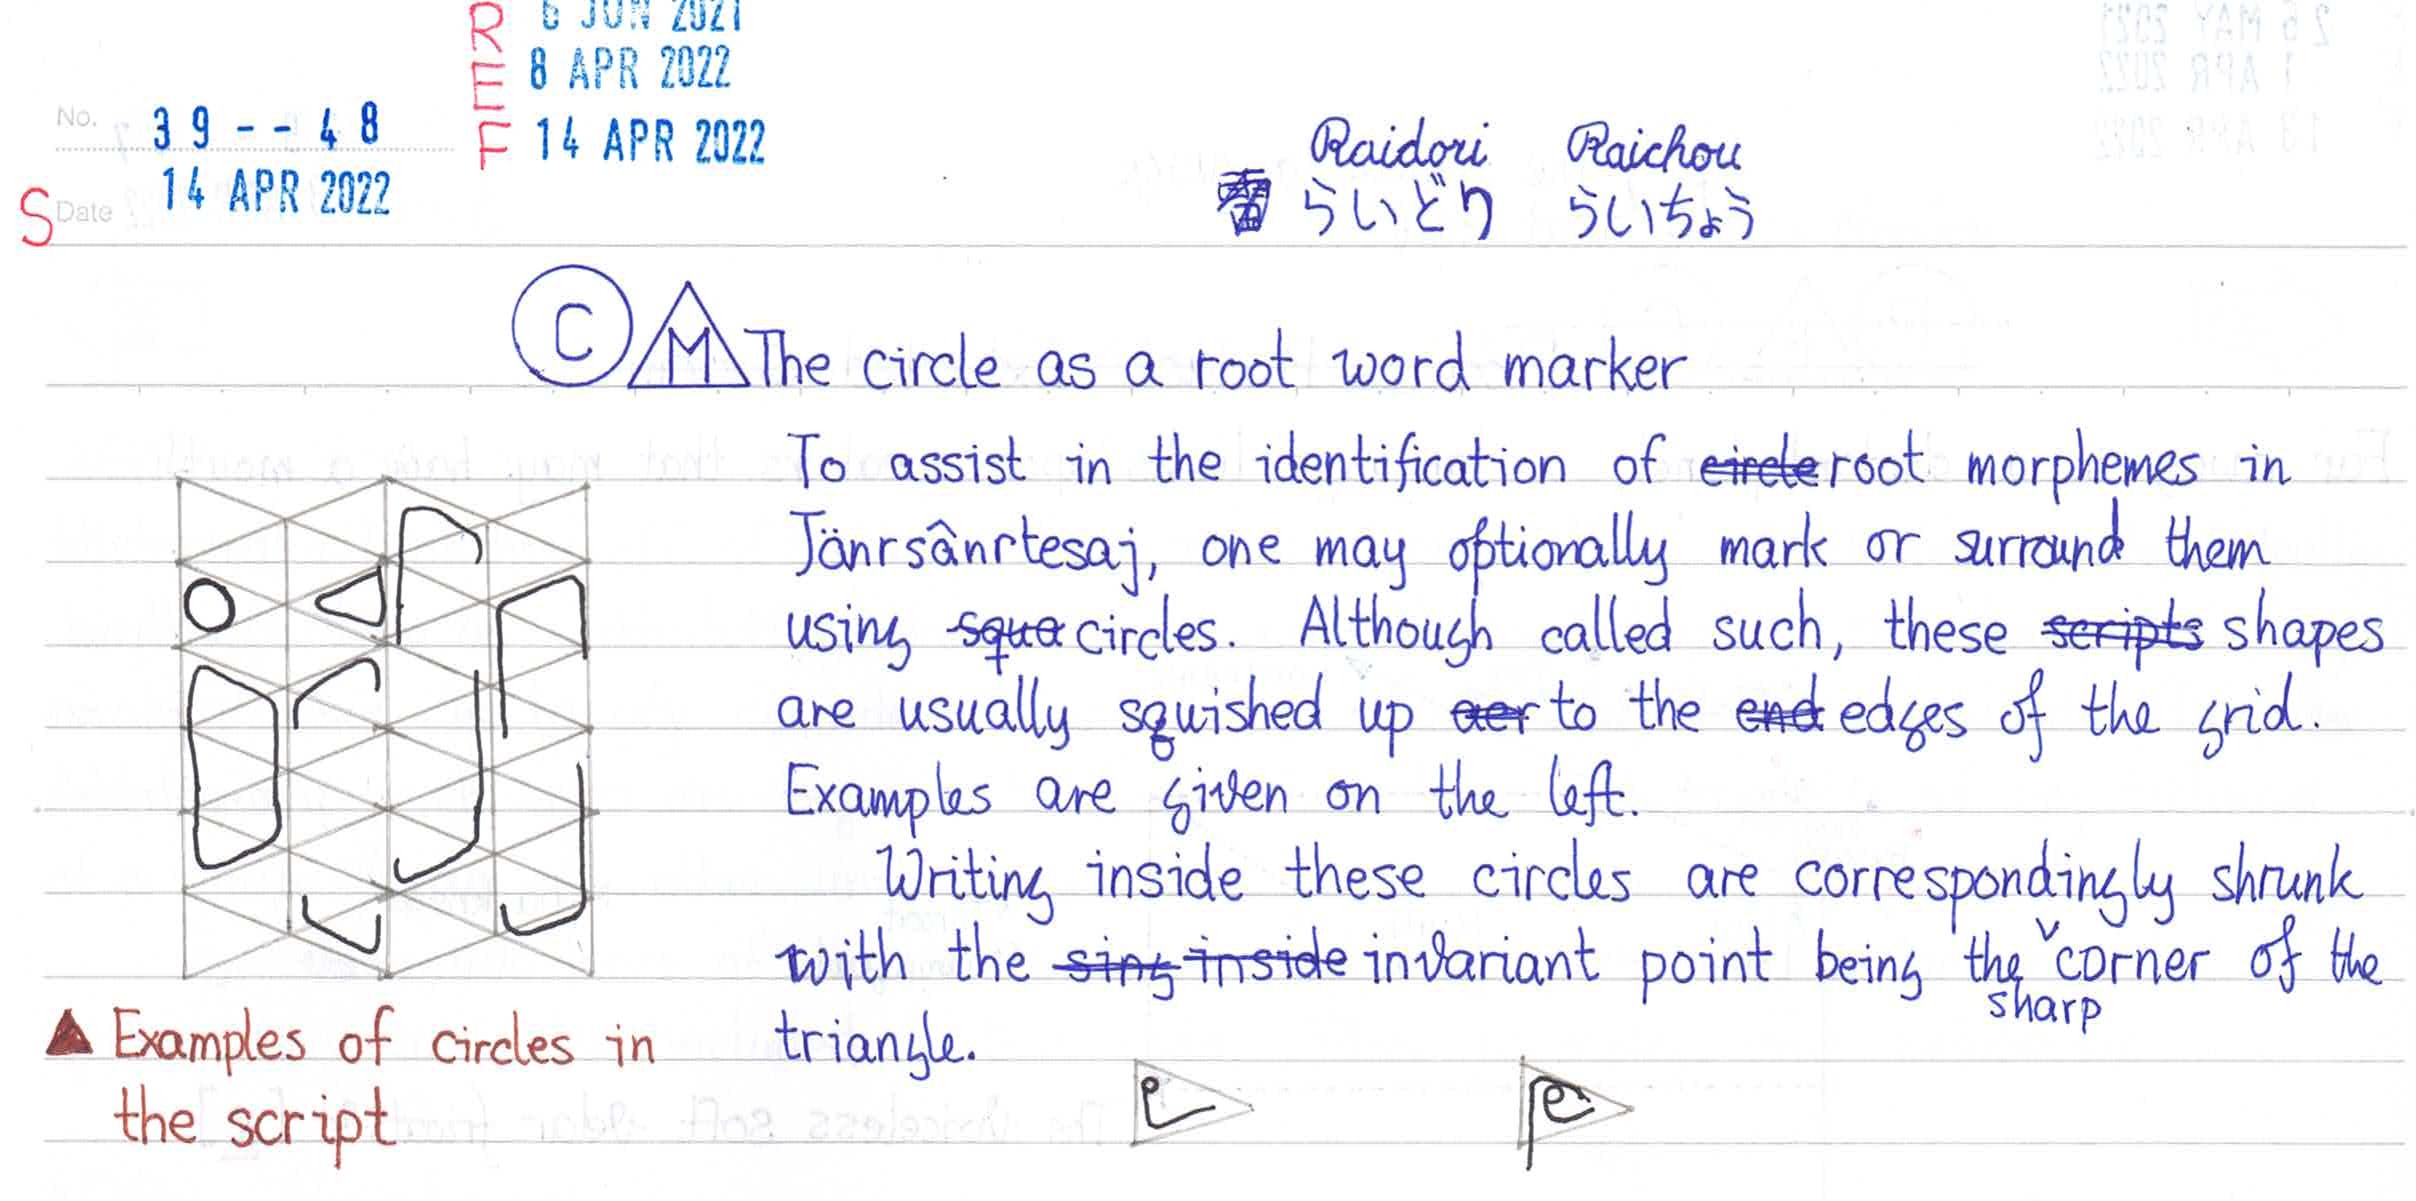 R E F
6 JUN 2021
8 APR 2022
14 APR 2022
No. 39--48
S Date 14 APR 2022
Raidori Raichou
らいどり らいちょう
C M The circle as a root word marker
To assist in the identification of circle root morphemes in
Jänrsânrtesaj, one may optionally mark or surround them
using squa circles. Although called such, these scripts shapes
are usually squished up aer to the end edges of the grid.
Examples are given on the left.
Writing inside these circles are correspondingly shrunk
with the sing inside invariant point being the sharp corner of the
triangle.
▲ Examples of circles in
the script